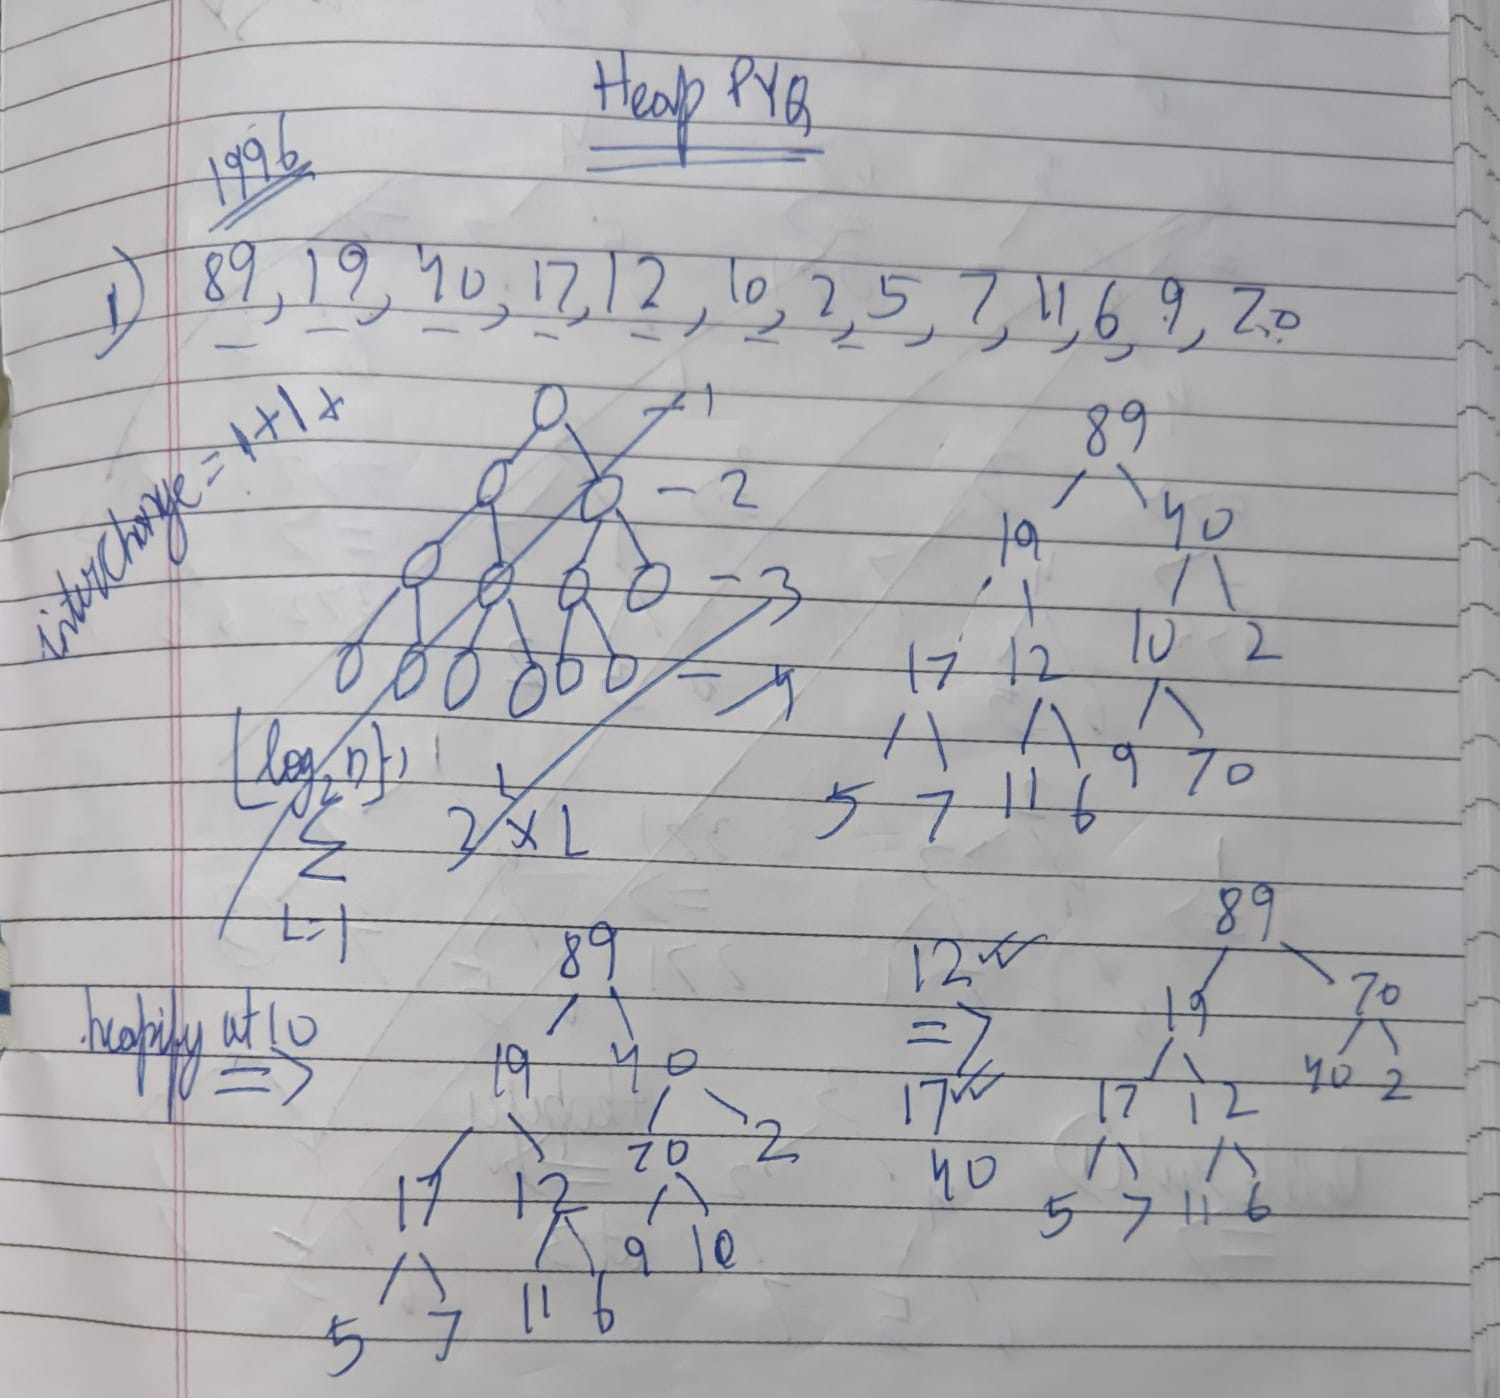 Heap PYQ
1996
1) 89, 19, 40, 17, 12, 10, 2, 5, 7, 11, 6, 9, 70
interchange = 1+1+
- 1
- 2
- 3
- 4
89
19 40
17 12 10 2
5 7 11 6 9 70
⌊log₂n⌋+1
Σ 2^L × L
L=1
heapify at 10
=>
89
19 40
17 12 70 2
5 7 11 6 9 10
12 ✓✓
=>
17 ✓✓
40
89
19 70
17 12 40 2
5 7 11 6